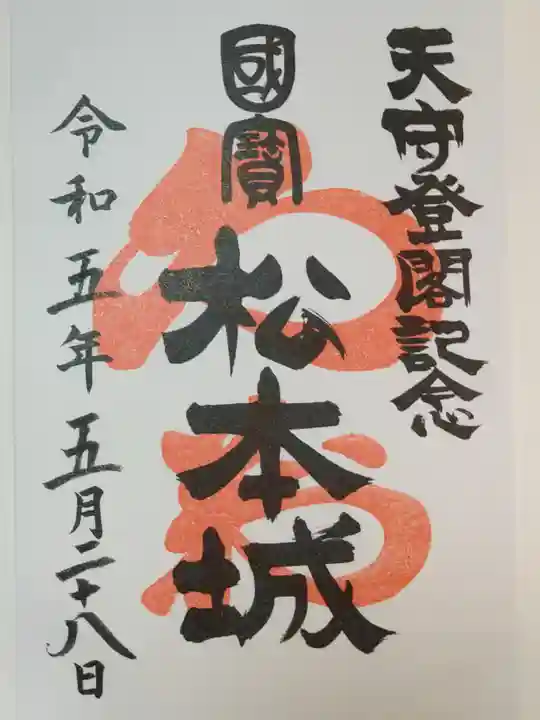 天守登閣記念
國寶
松本城
令和五年五月二十八日